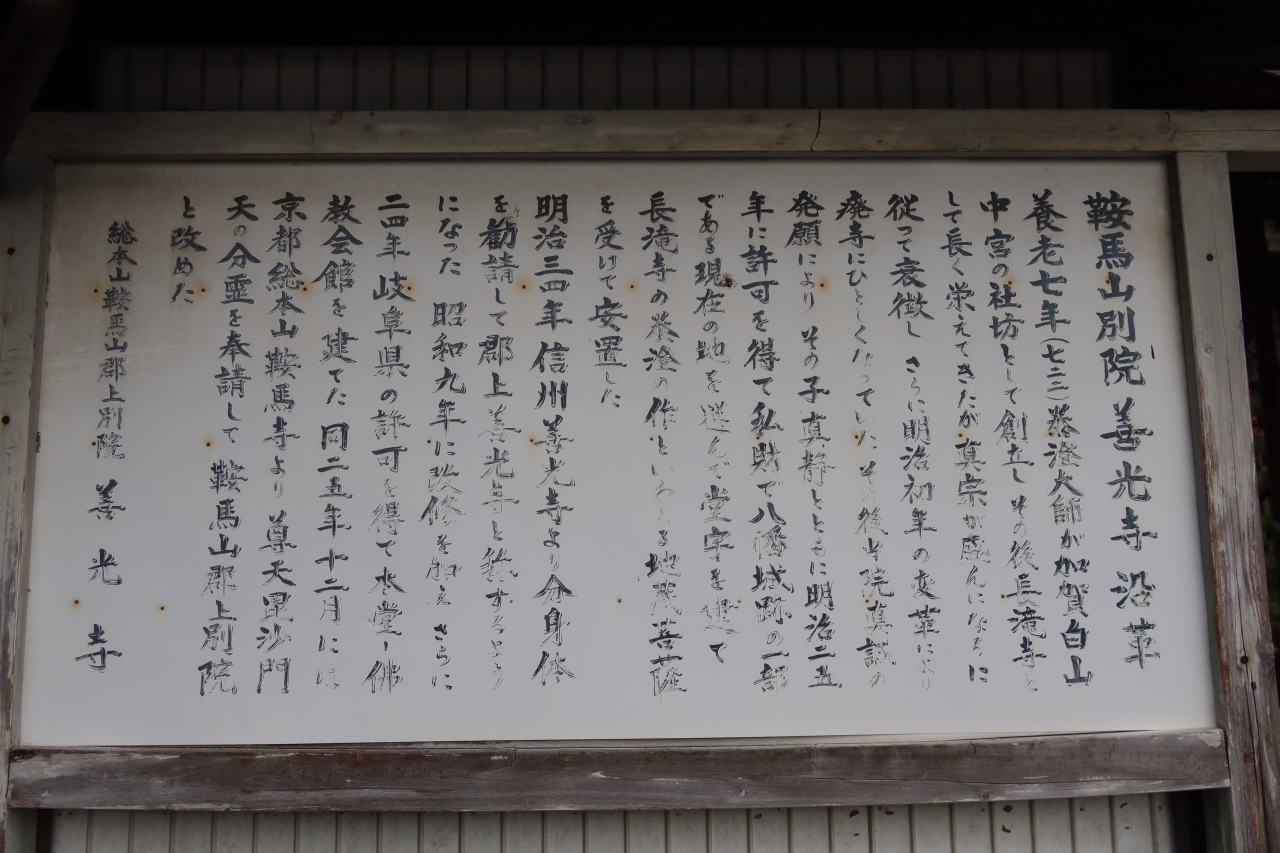 鞍馬山別院善光寺沿革
養老七年(七二三)泰澄大師が加賀白山
中宮の社坊として創立し その後長滝寺と
して長く栄えてきたが真宗が盛んになるに
従って衰徴し さらに明治初年の変革により
廃寺にひとしくなっていた その後当院真誠の
発願により その子真静とともに明治二五
年に許可を得て私財で八幡城跡の一部
である現在の地を選んで堂宇を建て
長滝寺の泰澄の作といわれる地蔵菩薩
を受けて安置した
明治三四年信州善光寺より分身佛
を勧請して郡上善光寺と称するよう
になった 昭和九年に改修を加え さらに
二四年 岐阜県の許可を得て本堂、佛
教会館を建てた 同二五年十二月には
京都総本山鞍馬寺より尊天毘沙門
天の分霊を奉請して 鞍馬山郡上別院
と改めた
総本山鞍馬山郡上別院 善光寺